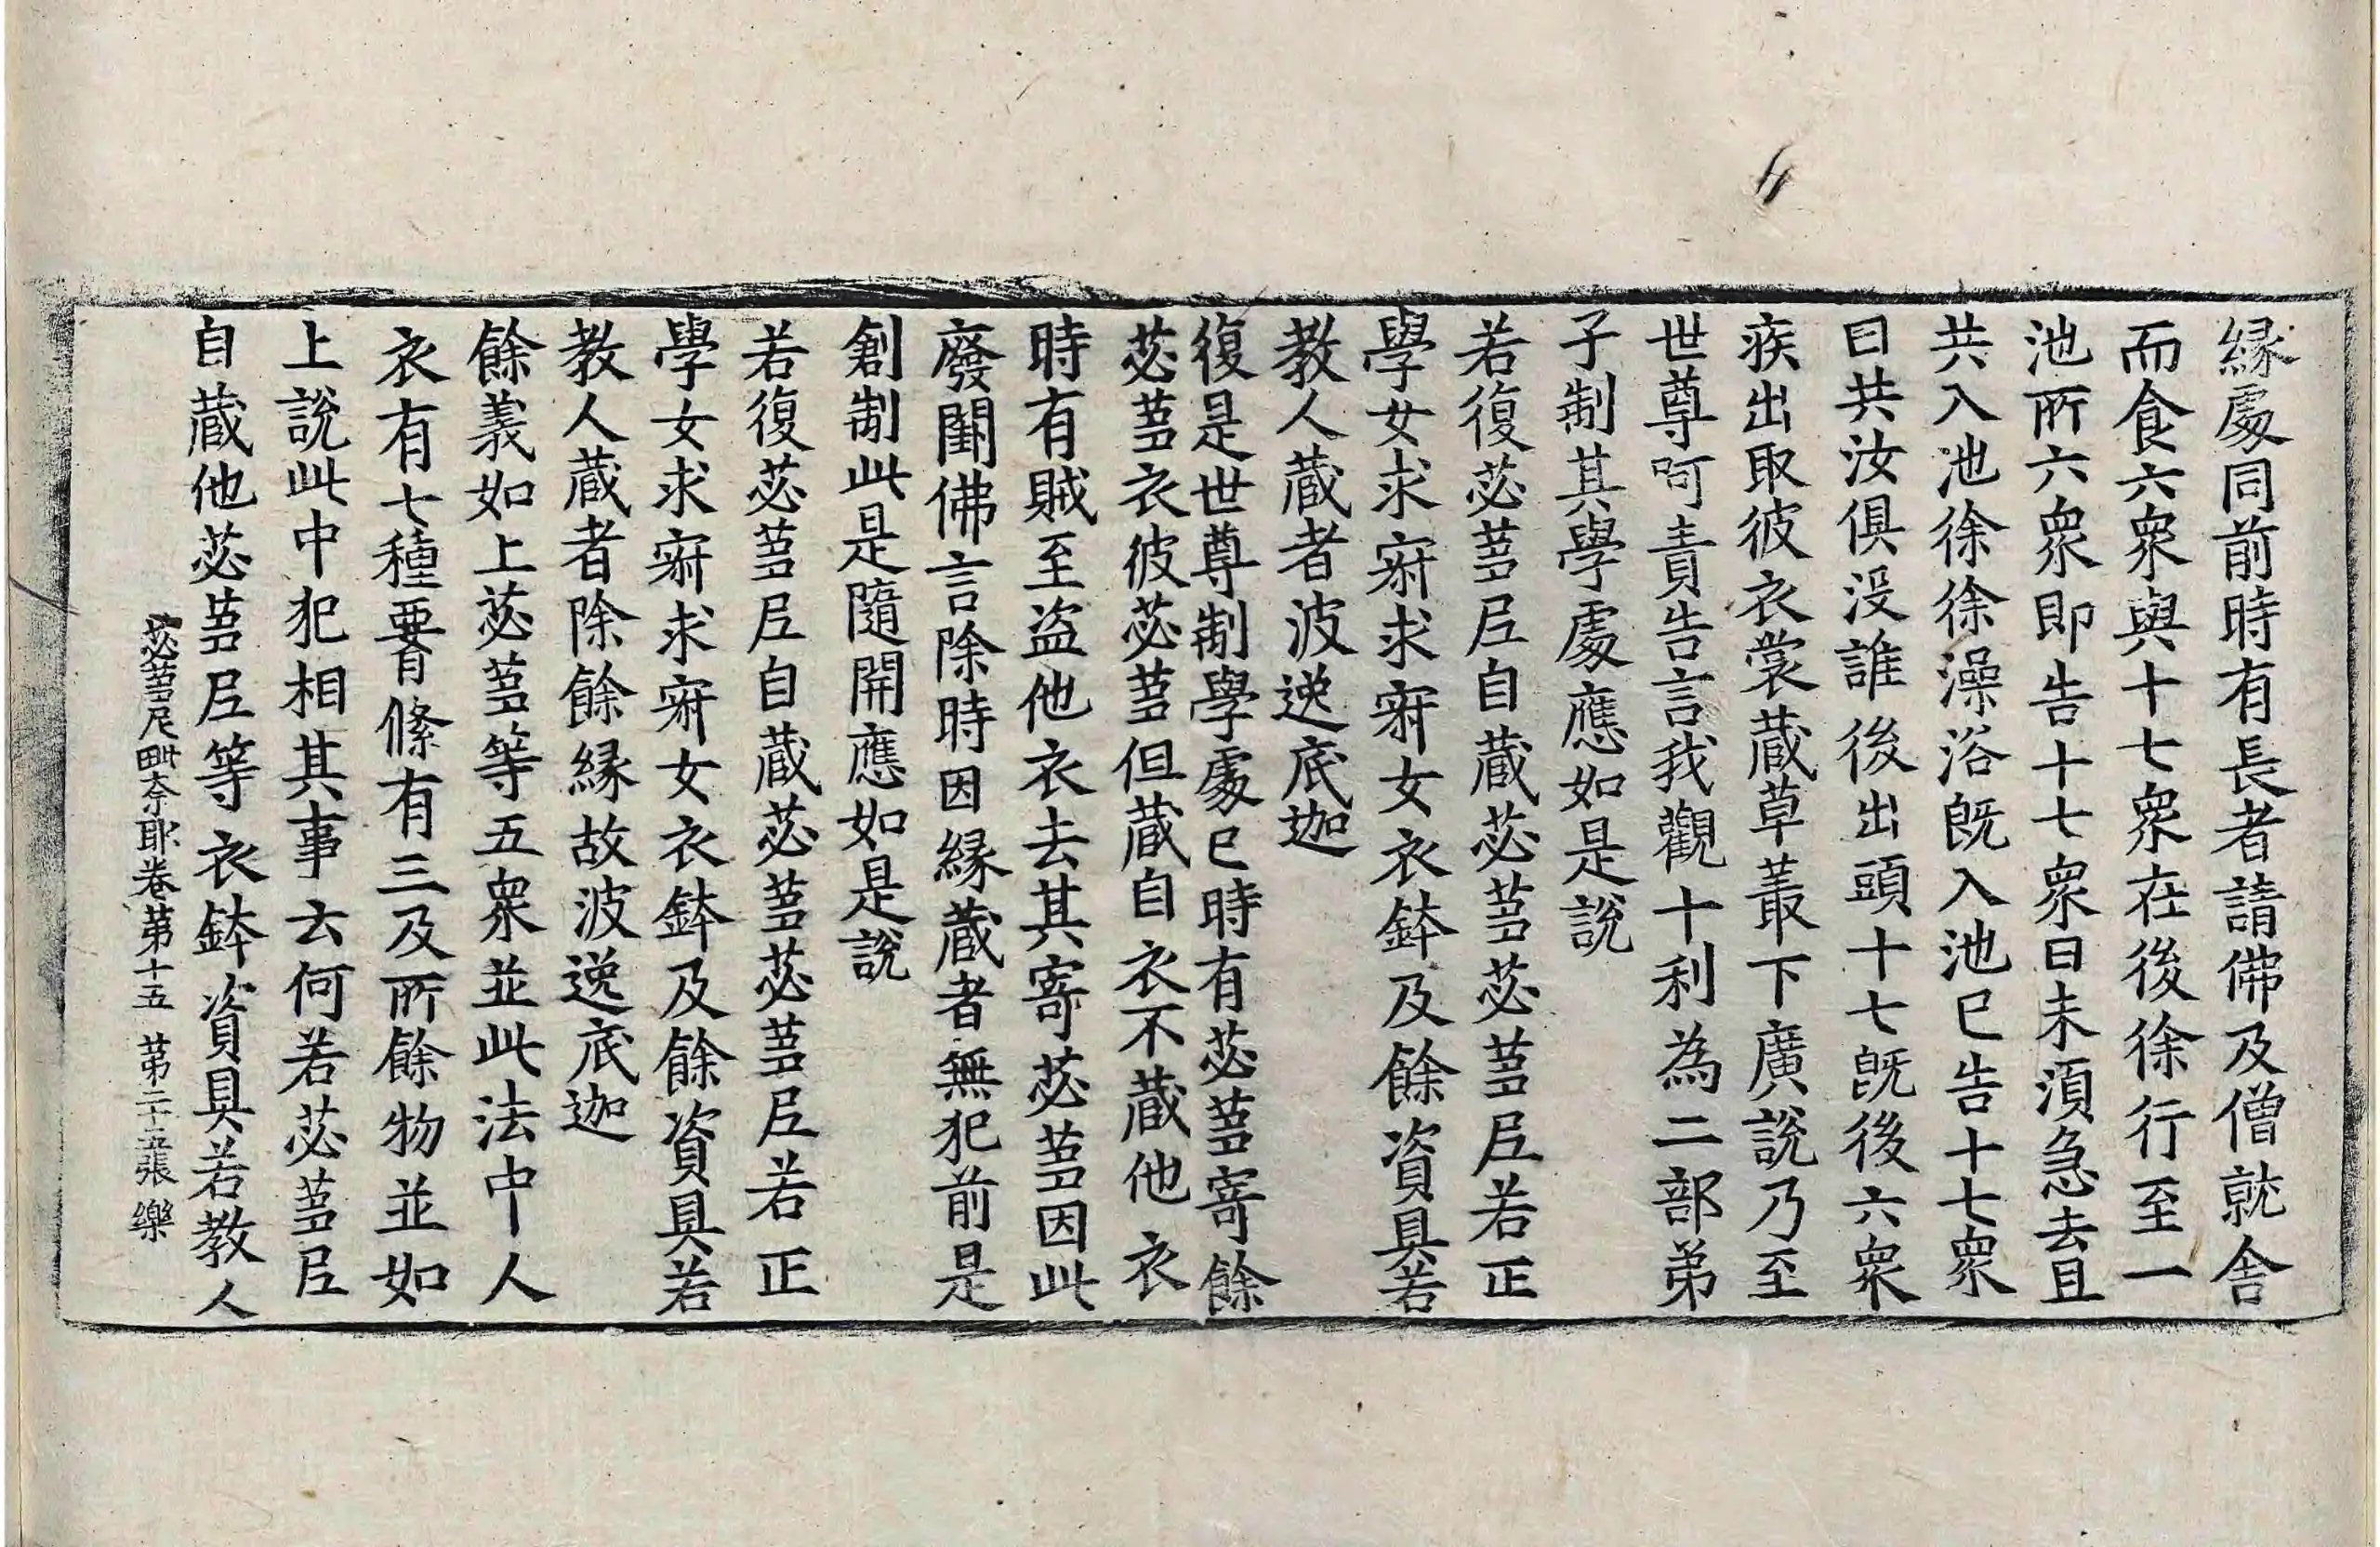 緣處同前時有長者請佛及僧就舍
而食六衆與十七衆在後徐行至一
池所六衆即告十七衆曰未湏急去且
共入池徐徐澡浴旣入池已告十七衆
曰共汝俱没誰後出頭十七旣後六衆
疾出取彼衣裳蔵草叢下廣說乃至
世尊呵責告言我觀十利為二部弟
子制其學處應如是說
若復苾蒭尼自蔵苾蒭苾蒭尼若正
學女求寂求寂女衣鉢及餘資具若
教人蔵者波逸底迦
復是世尊制學處已時有苾蒭寄餘
苾蒭衣彼苾蒭但蔵自衣不蔵他衣
時有賊至盜他衣去其寄苾蒭因此
廢闕佛言除時因緣蔵者無犯前是
創制此是隨開應如是說
若復苾蒭尼自蔵苾蒭苾蒭尼若正
學女求寂求寂女衣鉢及餘資具若
教人蔵者除餘緣故波逸底迦
餘義如上苾蒭等五衆並此法中人
衣有七種要有絛有三及所餘物並如
上說此中犯相其事云何若苾蒭尼
自蔵他苾蒭尼等衣鉢資具若教人
苾蒭尼毗奈耶卷第十五 第二十五張 樂